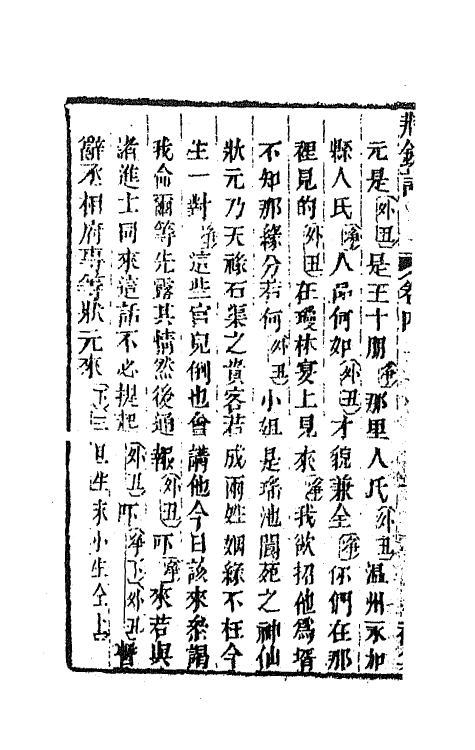 荆釵記
元是〔外丑〕是王十朋〔淨〕那里人氏〔外丑〕温州永加
縣人氏〔淨〕人品何如〔外丑〕才貌兼全〔淨〕你們在那
裡見的〔外丑〕在瓊林宴上見來〔淨〕我欲招他爲壻
不知那緣分若何〔外丑〕小姐是瑤池閬苑之神仙
狀元乃天祿石渠之貴客若成兩姓姻緣不枉今
生一對〔淨〕這些官兒倒也會講他今日該來叅謁
我侖爾等先露其情然後通報〔外丑〕吓〔淨〕來若與
諸進士同來這話不必提起〔外丑〕吓〔淨下〕〔外丑〕暫
辭丞相府專等狀元來〔下〕三旦生末小生仝上